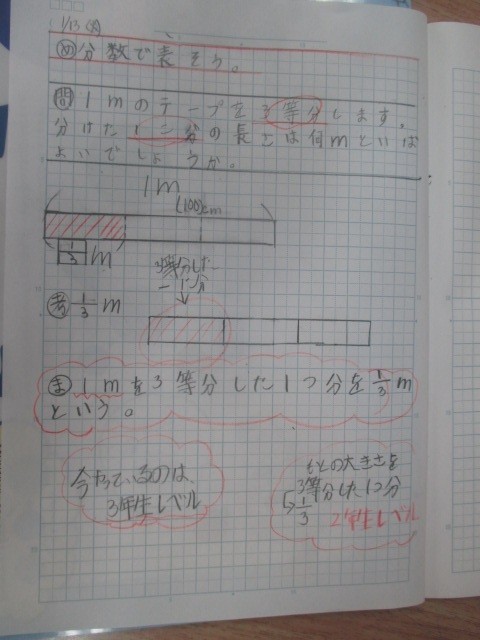 1/13
め 分数で表そう。
問 1mのテープを3等分します。
分けた1こ分の長さは何mといえば
よいでしょうか。
1m
(100)cm
1/3 m
3等分した
一こ分
考 1/3 m
ま 1mを3等分した1つ分を1/3m
という。
今やっているのは、
3年生レベル
もとの大きさを
3等分した1つ分
1/3
2年生レベル